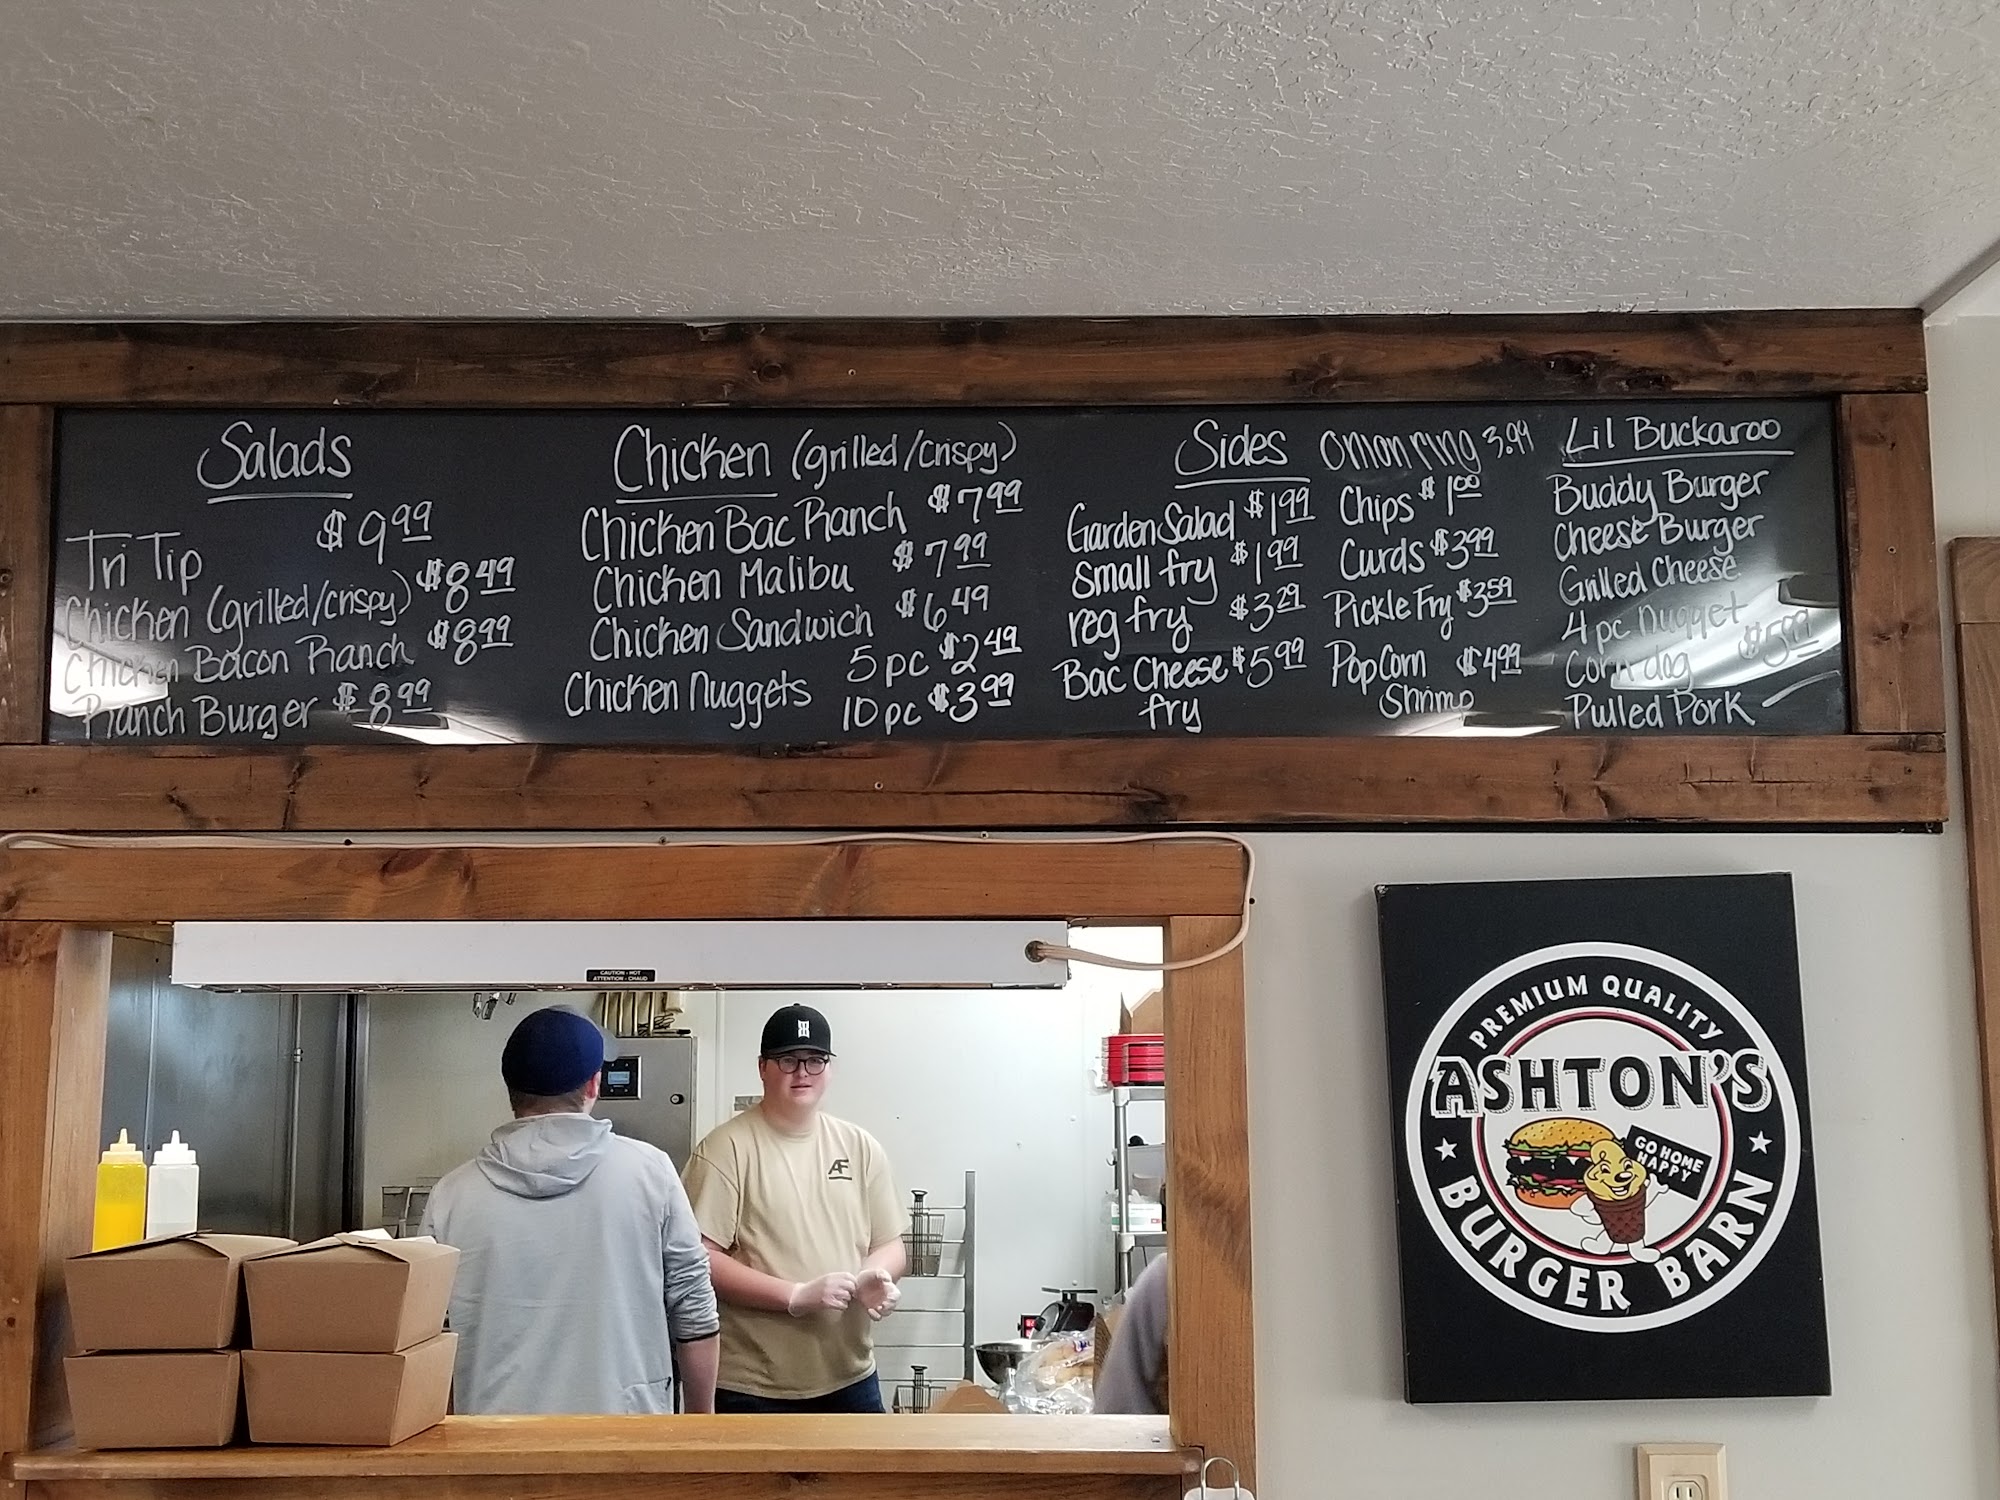 Salads
Tri Tip $9.99
Chicken (grilled/crispy) $8.49
Chicken Bacon Ranch $8.99
Ranch Burger $8.99
Chicken (grilled/crispy)
Chicken Bac Ranch $7.99
Chicken Malibu $7.99
Chicken Sandwich $6.49
5 pc $2.49
Chicken Nuggets
10 pc $3.99
Sides
Garden Salad $1.99
Small fry $1.99
reg fry $3.29
Bac Cheese $5.99
fry
Onion ring 3.99
Chips $1.00
Curds $3.99
Pickle Fry $3.59
PopCorn $4.99
Shrimp
Lil Buckaroo
Buddy Burger
Cheese Burger
Grilled Cheese
4 pc nugget
Corn dog $5.99
Pulled Pork
CAUTION - HOT
ATTENTION - CHAUD
AF
PREMIUM QUALITY
ASHTON'S
GO HOME
HAPPY
BURGER BARN